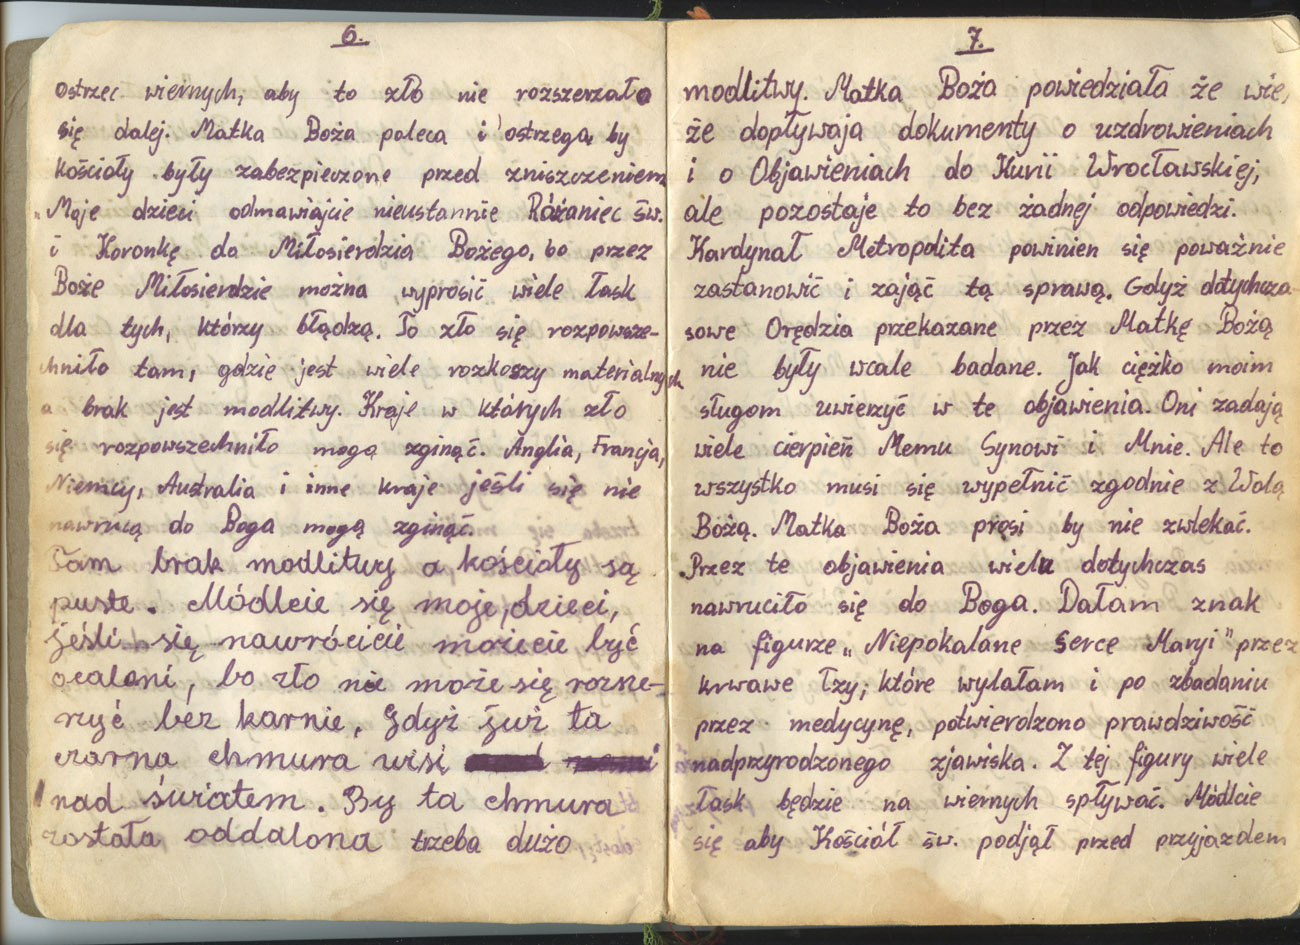 6.
ostrzec wiernych, aby to zło nie rozszerzało
się dalej. Matka Boża poleca i ostrzega, by
kościoły były zabezpieczone przed zniszczeniem
„Moje dzieci odmawiajcie nieustannie Różaniec św.
i Koronkę do Miłosierdzia Bożego, bo przez
Boże Miłosierdzie można wyprosić wiele łask
dla tych, którzy błądzą. To zło się rozpowsze-
chniło tam, gdzie jest wiele rozkoszy materialnych
a brak jest modlitwy. Kraje w których zło
się rozpowszechniło mogą zginąć. Anglia, Francja,
Niemcy, Australia i inne kraje jeśli się nie
nawrucą do Boga mogą zginąć.
Tam brak modlitwy a kościoły są
puste. Módlcie się moje dzieci,
jeśli się nawrócicie możecie być
ocaleni, bo zło nie może się rozsze-
rzyć bez karnie, gdyż już ta
czarna chmura wisi
nad światem. By ta chmura
została oddalona trzeba dużo
7.
modlitwy. Matka Boża powiedziała że wie,
że dopływaja dokumenty o uzdrowieniach
i o Objawieniach do Kurii Wrocławskiej,
ale pozostaje to bez żadnej odpowiedzi.
Kardynał Metropolita powinien się poważnie
zastanowić i zająć tą sprawą. Gdyż dotychcza-
sowe Orędzia przekazane przez Matkę Bożą
nie były wcale badane. Jak ciężko moim
sługom uwierzyć w te objawienia. Oni zadają
wiele cierpień Memu Synowi i Mnie. Ale to
wszystko musi się wypełnić zgodnie z Wolą
Bożą. Matka Boża prosi by nie zwlekać.
Przez te objawienia wielu dotychczas
nawruciło się do Boga. Dałam znak
na figurze „Niepokalane Serce Maryi" przez
krwawe łzy, które wylałam i po zbadaniu
przez medycynę, potwierdzono prawdziwość
nadprzyrodzonego zjawiska. Z tej figury wiele
łask będzie na wiernych spływać. Módlcie
się aby Kościół św. podjął przed przyjazdem